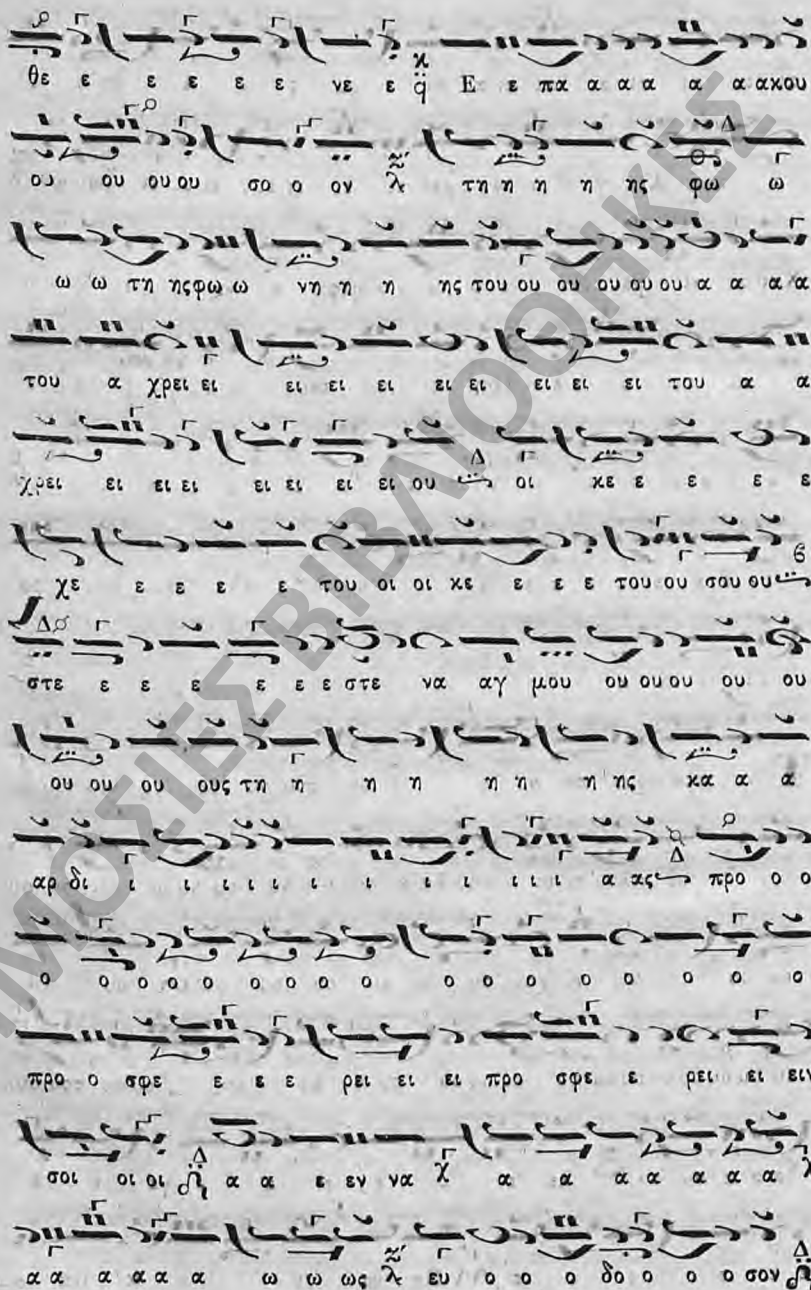 θε ε ε ε ε ε νε ε Ε ε πα α α α α α ακου
ου ου ου ου σο ο ον τη η η η ης φω ω
ω ω τη ης φω ω νη η η ης του ου ου ου ου ου α α α α
του α χρει ει ει ει ει ει ει ει ει ει του α α
χρει ει ει ει ει ει ει ει ου οι κε ε ε ε ε
χε ε ε ε ε του οι οι κε ε ε ε του ου σου ου
στε ε ε ε ε ε ε στε να αγ μου ου ου ου ου ου
ου ου ου ους τη η η η η η η ης κα α α
αρ δι ι ι ι ι ι ι ι ι ι ι ι α ας προ ο ο
ο ο ο ο ο ο ο ο ο ο ο ο ο ο ο ο ο
προ ο σφε ε ε ε ρει ει ει προ σφε ε ρει ει ειν
σοι οι οι α α ε εν να α α α α α α
α α α α α α ω ω ως ευ ο ο ο δο ο ο ο σον
ΜΟΣΙΕΣ ΒΙΒΛΙΟΘΗΚΕΣ